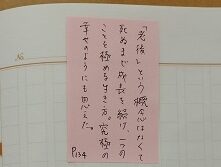 No.
「老後」という概念はなくて
死ぬまで成長を続け、一つの
ことを極める生き方。究極の
幸せのようにも思えた。
P134